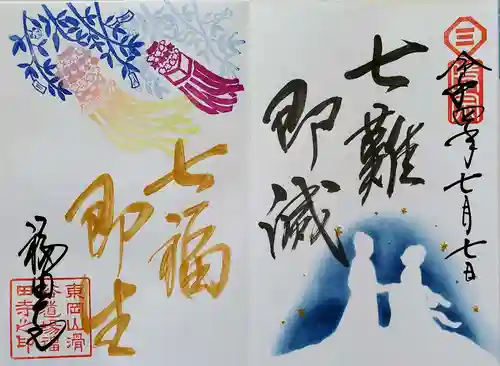 令和四年七月七日
七難
即滅
七福
即生
福田寺
東岡山滑
谷道場福
田寺之印